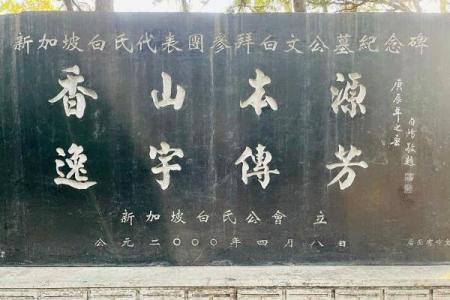 新加坡白氏代表團參拜白文公墓紀念碑
香山本源
逸宇傳芳
庚辰年之春
新加坡白氏公會 立
公元二〇〇〇年四月八日